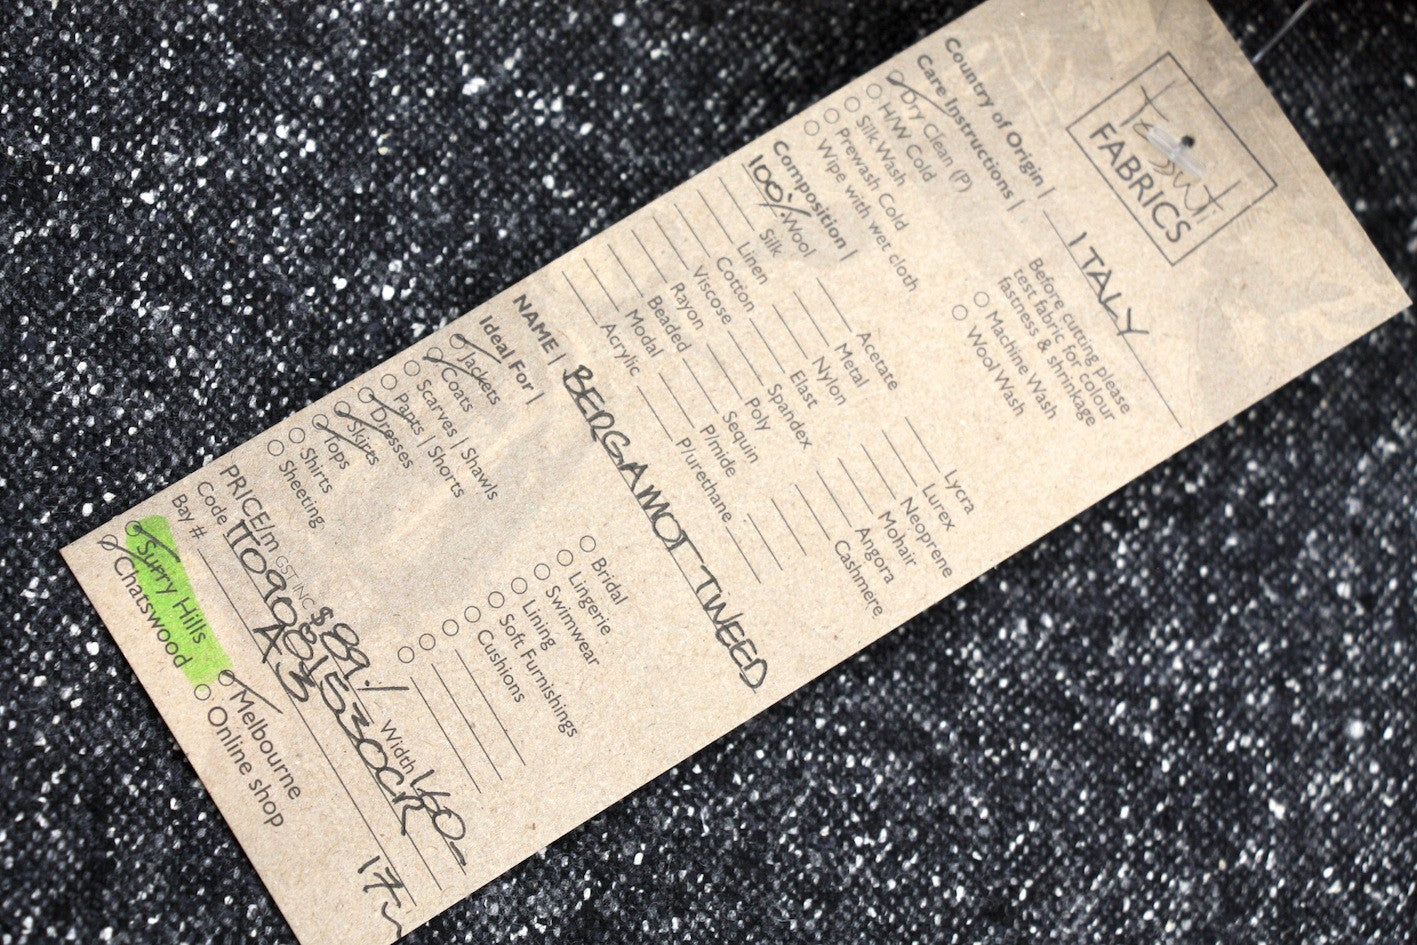 Tessuti
FABRICS
Country of Origin | ITALY
Care Instructions |
Dry Clean (P)
H/W Cold
Silk Wash
Prewash Cold
Wipe with wet cloth
Before cutting please
test fabric for colour
fastness & shrinkage
Machine Wash
Wool Wash
Composition |
100% Wool
Silk
Linen
Cotton
Viscose
Rayon
Beaded
Modal
Acrylic
Acetate
Metal
Nylon
Elast
Spandex
Poly
Sequin
P/mide
P/urethane
Lycra
Lurex
Neoprene
Mohair
Angora
Cashmere
NAME | BERGAMOT TWEED
Ideal For |
Jackets
Coats
Scarves | Shawls
Pants | Shorts
Dresses
Skirts
Tops
Shirts
Sheeting
Bridal
Lingerie
Swimwear
Lining
Soft Furnishings
Cushions
PRICE/m GST INC $89./ Width 140
Code
Bay # A3
17
Surry Hills
Chatswood
Melbourne
Online shop